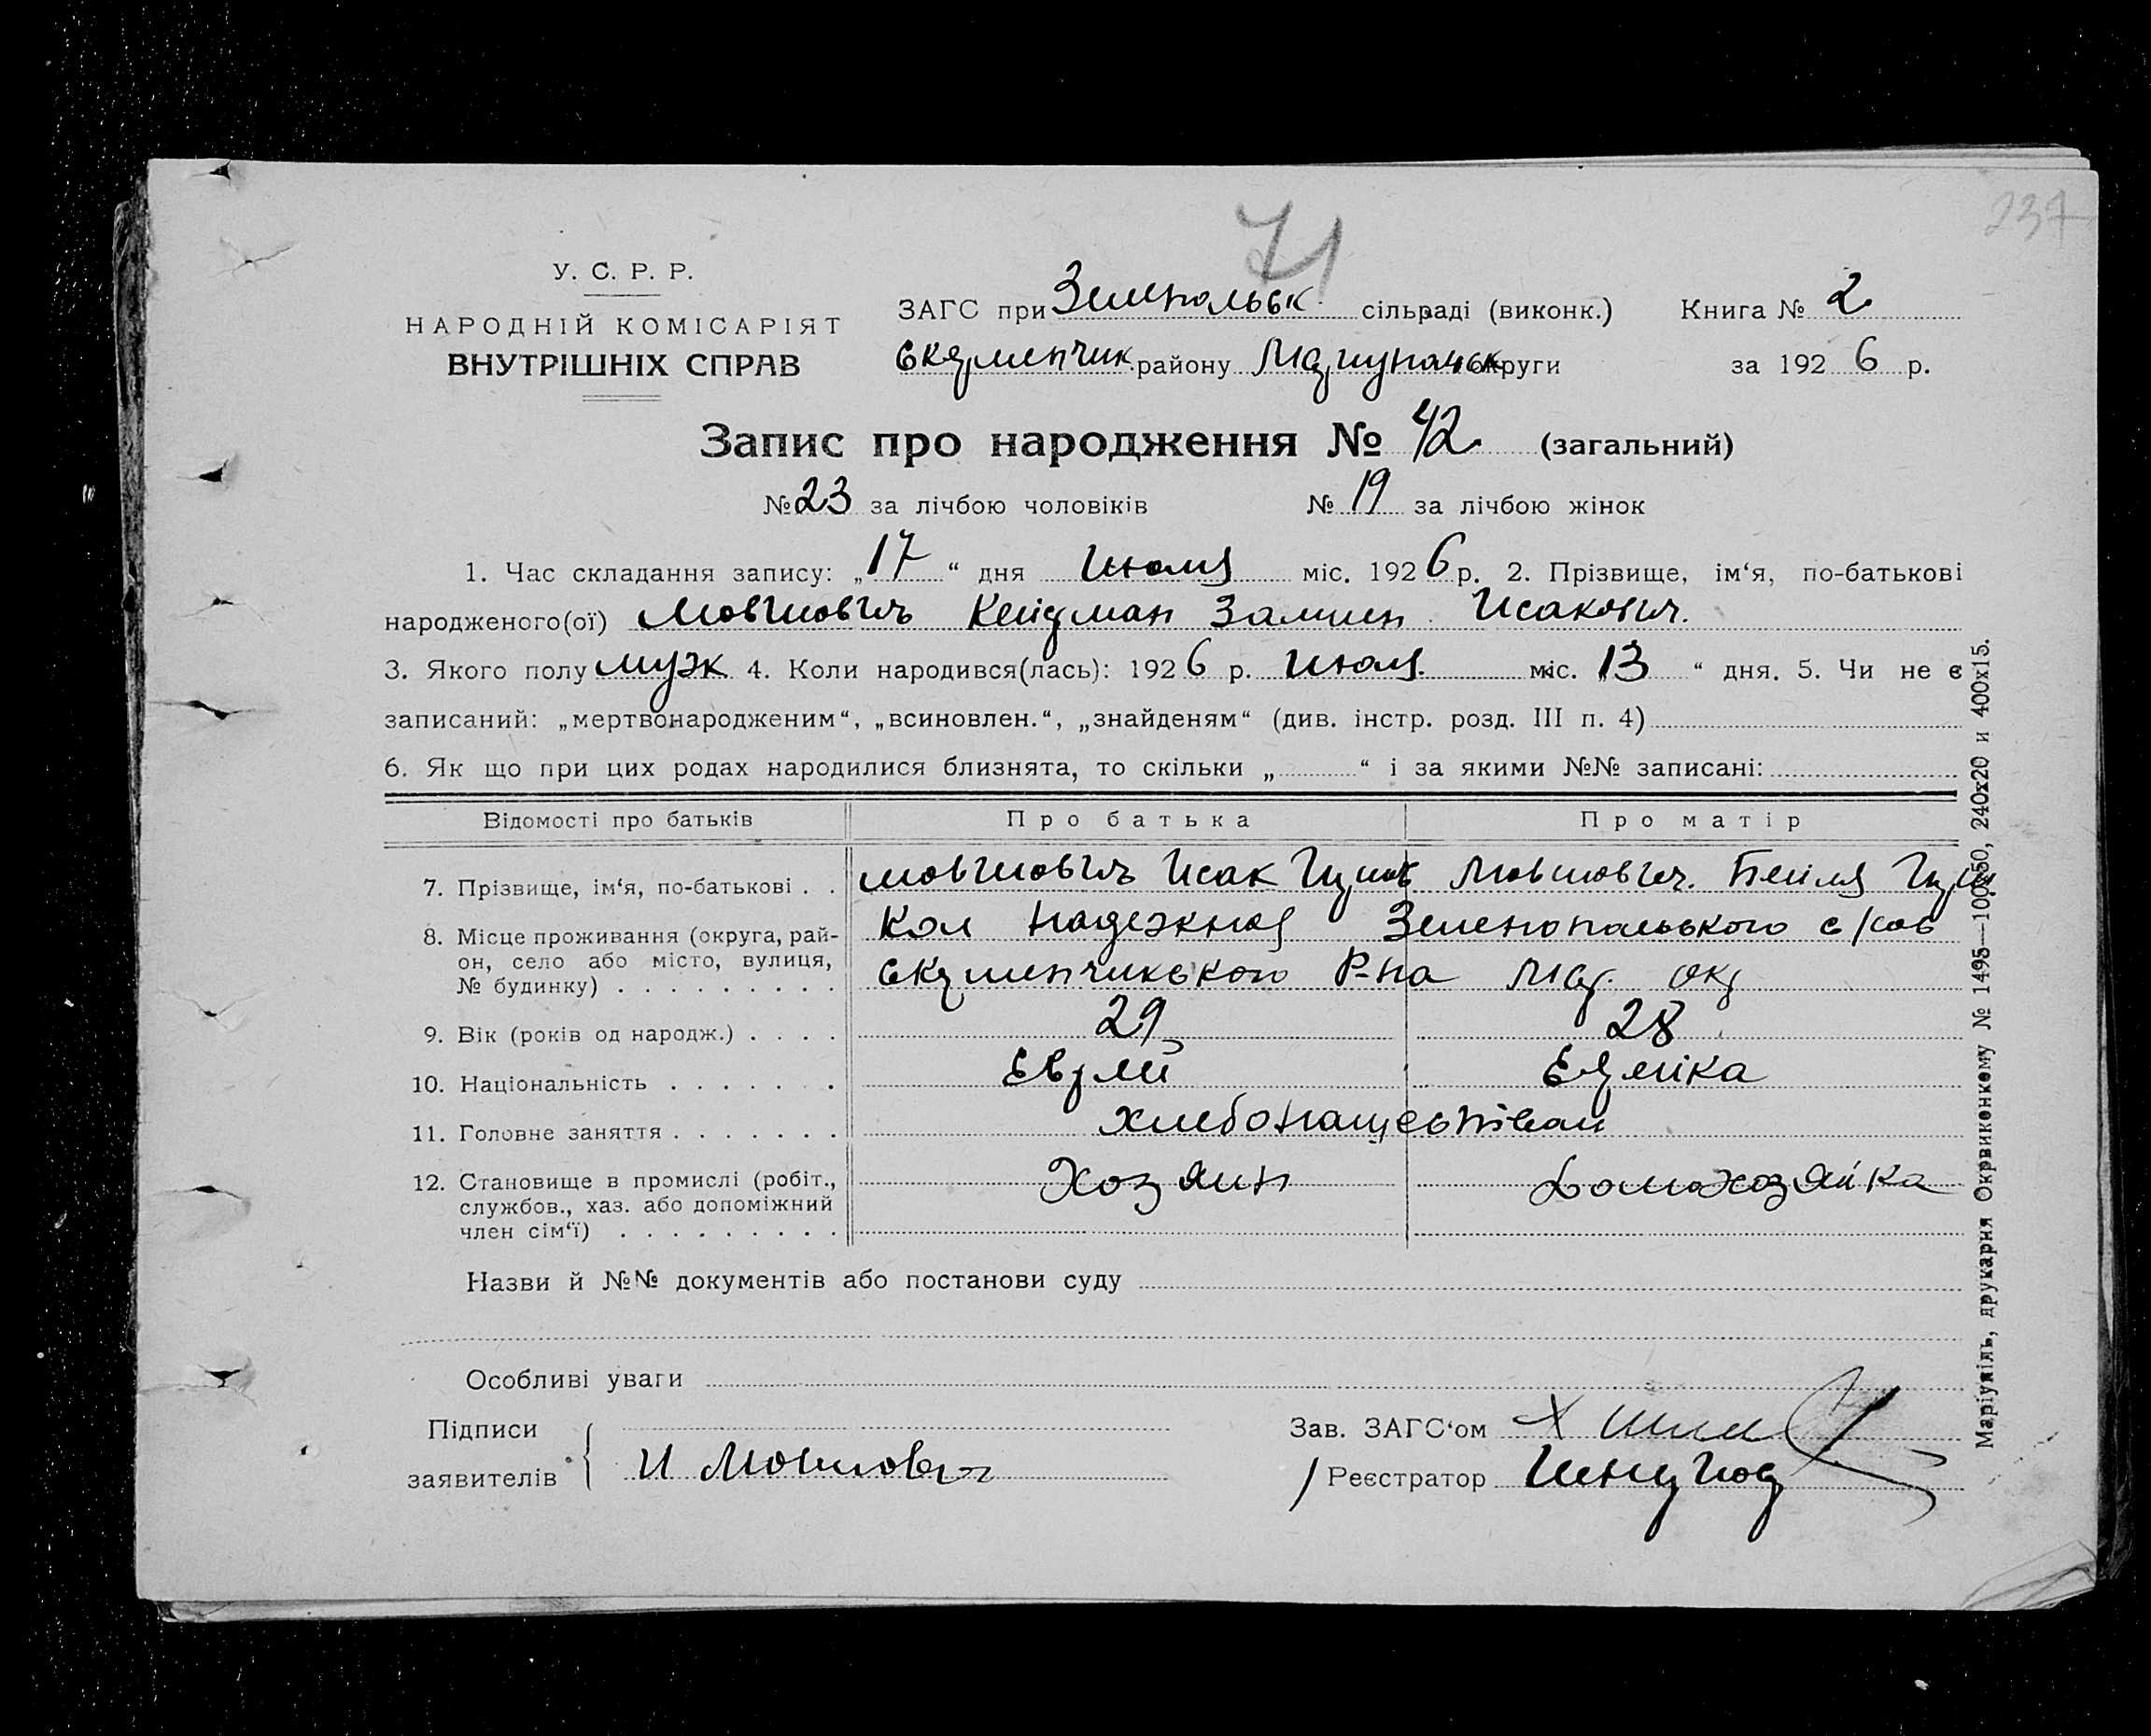 71
237
У. С. Р. Р.
НАРОДНІЙ КОМІСАРІЯТ
ВНУТРІШНІХ СПРАВ
ЗАГС при Зеленопольск. сільраді (виконк.) Книга № 2
району округи за 1926 р.
Запис про народження № 42 (загальний)
№ 23 за лічбою чоловіків № 19 за лічбою жінок
1. Час складання запису: „17“ дня Июля міс. 1926 р. 2. Прізвище, ім‘я, по-батькові
народженого(ої) Мовшович Исакович.
3. Якого полу муж 4. Коли народився(лась): 1926 р. Июля міс. 13 “ дня. 5. Чи не є
записаний: „мертвонародженим“, „всиновлен.“, „знайденям“ (див. інстр. розд. III п. 4)
6. Як що при цих родах народилися близнята, то скільки „ “ і за якими №№ записані:
Відомості про батьків Про батька Про матір
7. Прізвище, ім‘я, по-батькові . . Мовшович Исак Мовшович. Бейля
8. Місце проживання (округа, рай- Кол Надежная Зеленопольского с/сов
он, село або місто, вулиця, Р-на окр
№ будинку) . . . . . . . . .
9. Вік (років од народж.) . . . . 29 28
10. Національність . . . . . . . Еврей Еврейка
11. Головне заняття . . . . . . .
12. Становище в промислі (робіт., Хозяин Домохозяйка
службов., хаз. або допоміжний
член сім‘ї) . . . . . . . . .
Назви й №№ документів або постанови суду
Особливі уваги
Підписи Зав. ЗАГС‘ом
заявителів И Мовшович Реєстратор
Маріупіль, друкарня Окрвиконкому № 1495—100х50, 240х20 и 400х15.